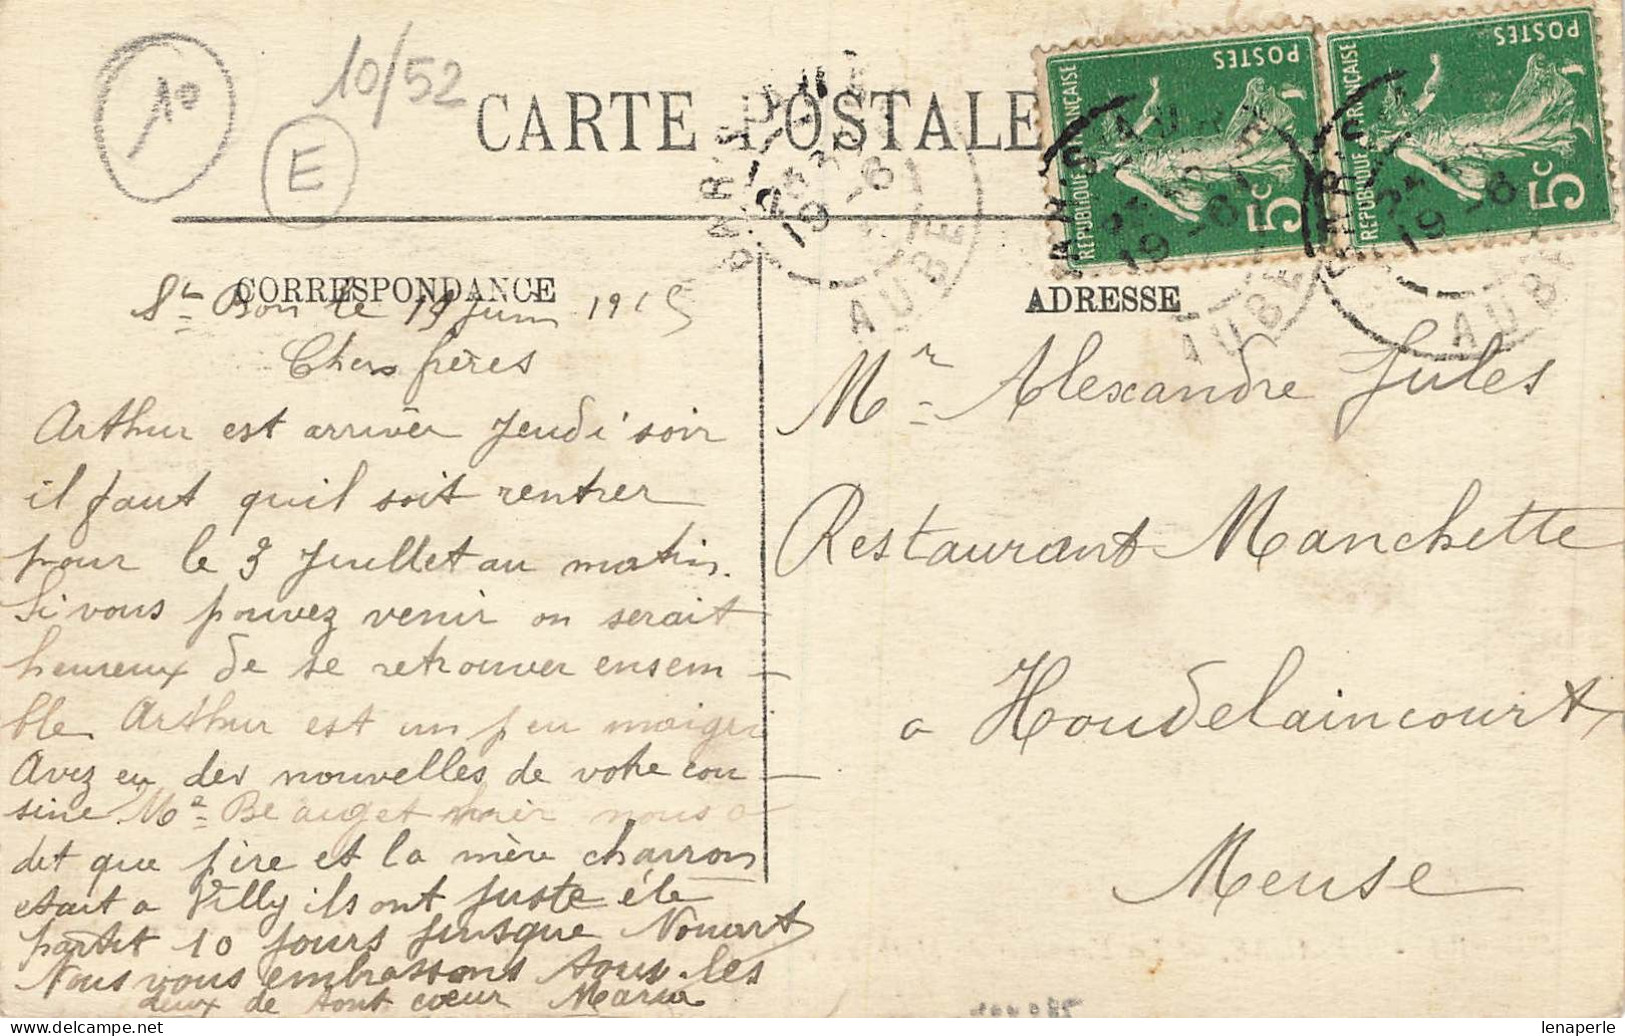 1º
10/52
E
CARTE POSTALE
REPUBLIQUE FRANÇAISE
POSTES
5c
REPUBLIQUE FRANÇAISE
POSTES
5c
AUBE
AUBE
AUBE
CORRESPONDANCE
St Bon le 19 Juin 1915
Chers frères
Arthur est arrivêr Jeudi soir
il faut quil soit rentrer
pour le 3 Juillet au matin.
Si vous pouvez venir on serait
heureux de se retrouver ensem-
ble Arthur est un peu maigri
Avez eu des nouvelles de votre cou-
sine Me nous a
dit que père et la mère charron
etait a Villy ils ont juste été
partit 10 jours jusque Nouart
Nous vous embrassons tous les
deux de tout cœur Maria
ADRESSE
Mr Alexandre Jules
Restaurant Manchette
a Houdelaincourt
Meuse
lenaperle